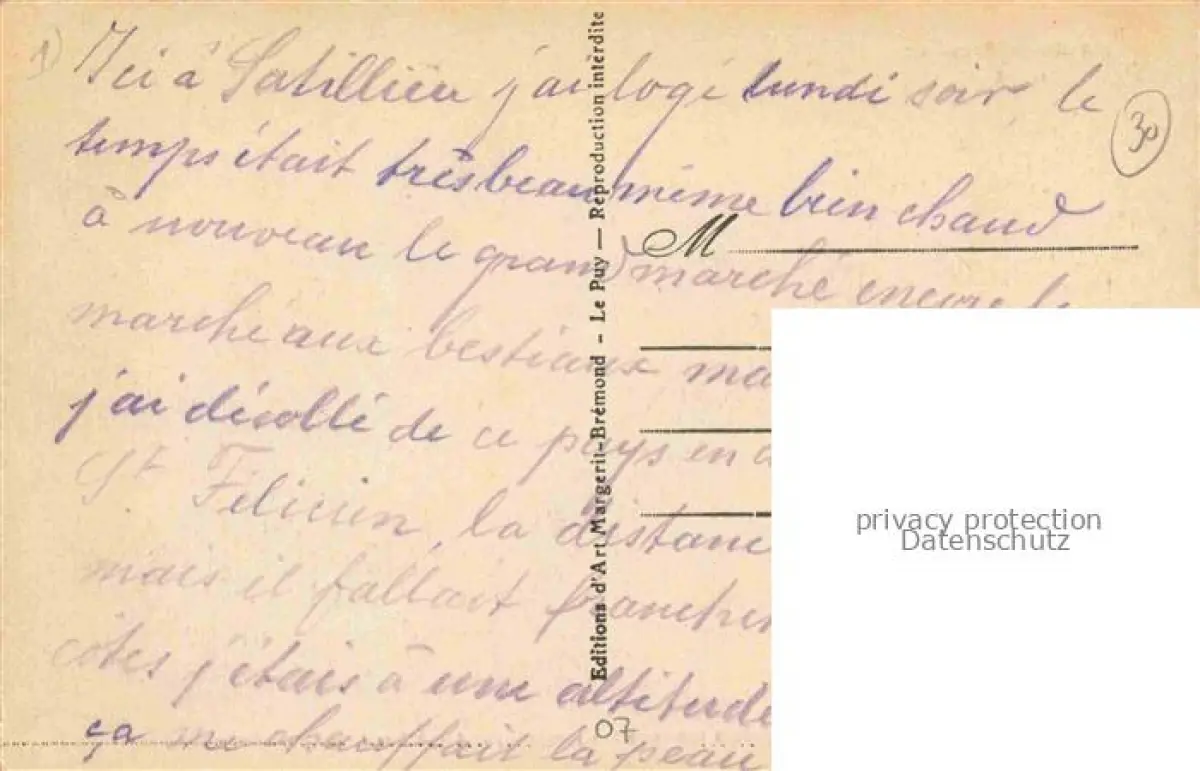 1) Ici à Satillieu j'ai logé lundi soir le
temps était très beau même bien chaud
30
à nouveau le grand marché encore le
M
marché aux bestiaux ma
j'ai décollé de ce pays en
St Felicien, la distanc
mais il fallait franchir
côtes j'étais à une altitude
ça me chauffait la peau
07
Editions d'Art Margerit-Brémond - Le Puy — Reproduction interdite
privacy protection
Datenschutz